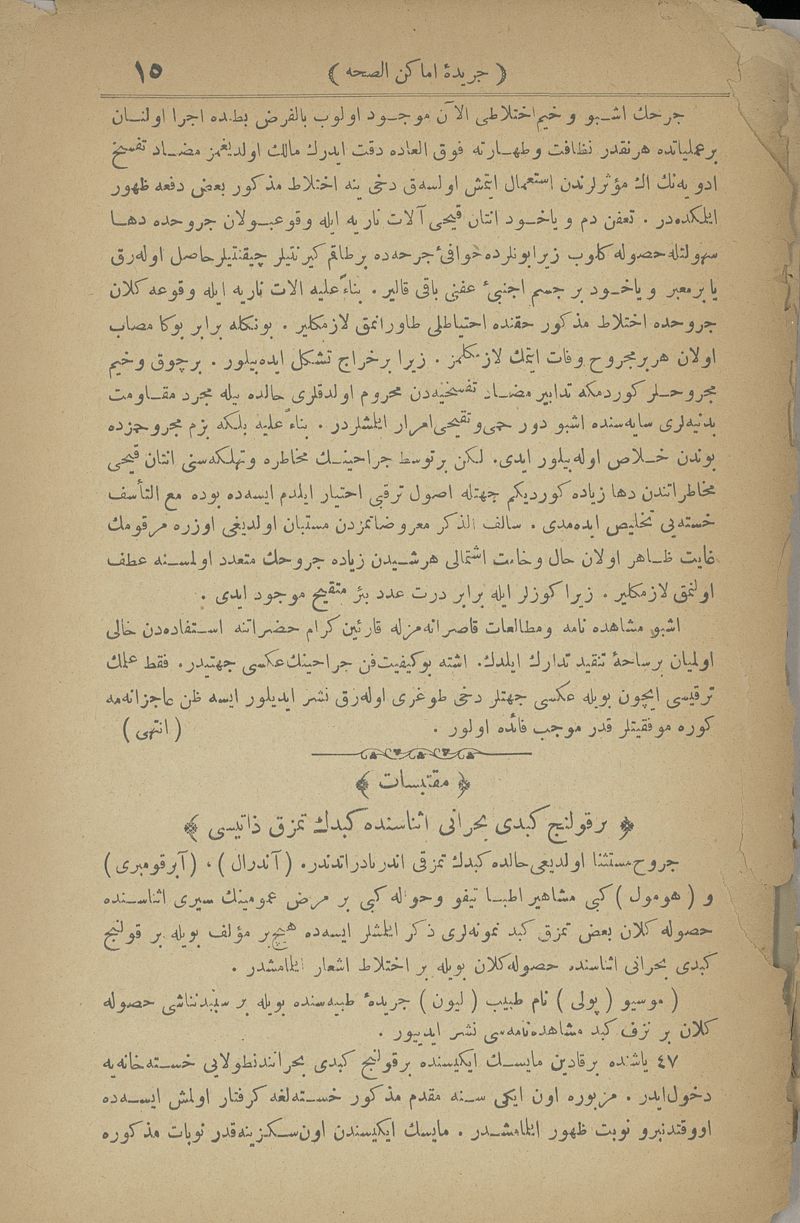 ( جریدهٔ اماکن الصحه ) ١٥
جرحك اشبو وخیم اختلاطی الآن موجود اولوب بالفرض بطده اجرا اولنان
برعملیاتده هرنقدر نظافت وطهارته فوق العاده دقت ایدرك مالك اولدیغمز مضاد تفسخ
ادویه‌نك اك مؤثرلرندن استعمال ایتمش اولسه‌ق دخی ینه اختلاط مذكور بعض دفعه ظهور
ایلكده‌در . تعفن دم ویاخود انتان قیحی آلات ناریه ایله وقوعبولان جروحده دها
سهولتله حصوله كلوب زیرا بونلرده حوافیٔ جرحه‌ده برطاقم كیرنتیلر چیقنتیلر حاصل اوله‌رق
یا برمعبر ویاخود بر جسم اجنبیٔ عفنی باقی قالیر . بناءً علیه الات ناریه ایله وقوعه كلان
جروحده اختلاط مذكور حقنده احتیاطلی طاورانمق لازمكلیر . بونكله برابر بوكا مصاب
اولان هربر مجروح وفات ایتمك لازمكلمز . زیرا برخراج تشكل ایده‌بیلور . برچوق وخیم
مجروحلر كوردمكه تدابیر مضاد تفسخیه‌دن محروم اولدقلری حالده بیله مجرد مقاومت
بدنیه‌لری سایه‌سنده اشبو دور حمی وتقیحی امرار ایلشلردر . بناءً علیه بلكه بزم مجروحمزده
بوندن خلاص اوله‌بیلور ایدی. لكن برتوسط جراحینك مخاطره وتهلكه‌سنی انتان قیحی
مخاطراتندن دها زیاده كوردیكم جهتله اصول ترقبی اختیار ایلدم ایسه‌ده بوده مع التأسف
خسته‌یی تخلیص ایده‌مدی . سالف الذكر معروضاتمزدن مستبان اولدیغی اوزره مرقومك
غایت ظاهر اولان حال وخامت اشتمالی هرشیدن زیاده جروحك متعدد اولمسنه عطف
اولنمق لازمكلیر . زیرا كوزلر ایله برابر درت عدد بئر متقیح موجود ایدی .
اشبو مشاهده نامه ومطالعات قاصرانه‌مزله قارئین كرام حضراتنه استفاده‌دن خالی
اولمیان برساحهٔ تنقید تدارك ایلدك. اشته بوكیفیت فن جراحینك عكسی جهتیدر. فقط علمك
ترقیسی ایچون بویله عكسی جهتلر دخی طوغری اوله‌رق نشر ایدیلور ایسه ظن عاجزانه‌مه
كوره موفقیتلر قدر موجب فائده اولور . ( انتهی )
﴿ مقتبسات ﴾
﴿ برقولنج كبدی بحرانی اثناسنده كبدك تمزق ذاتیسی ﴾
جروح مستثنا اولدیغی حالده كبدك تمزقی اندر نادراتدندر. ( آندرال ) ، ( آبرقومبری )
و ( هومول ) كبی مشاهیر اطبا تیفو وحوله كبی بر مرض عمومینك سیری اثناسنده
حصوله كلان بعض تمزق كبد نمونه‌لری ذكر ایلشلر ایسه‌ده هیچ‌بر مؤلف بویله بر قولنج
كبدی بحرانی اثناسنده حصوله كلان بویله بر اختلاط اشعار ایلمامشدر .
( موسیو ( پولی ) نام طبیب ( لیون ) جریدهٔ طبیه‌سنده بویله بر سببدنناشی حصوله
كلان بر نزف كبد مشاهده‌نامه‌سی نشر ایدیيور .
٤٧ یاشنده برقادین مایسك ایكیسنده برقولنج كبدی بحرانندنطولایی خسته‌خانه‌یه
دخول ایدر . مزبوره اون ایكی سنه مقدم مذكور خسته‌لغه كرفتار اولمش ایسه‌ده
اووقتدنبرو نوبت ظهور ایلمامشدر . مایسك ایكیسندن اون‌سكزینه‌قدر نوبات مذكوره